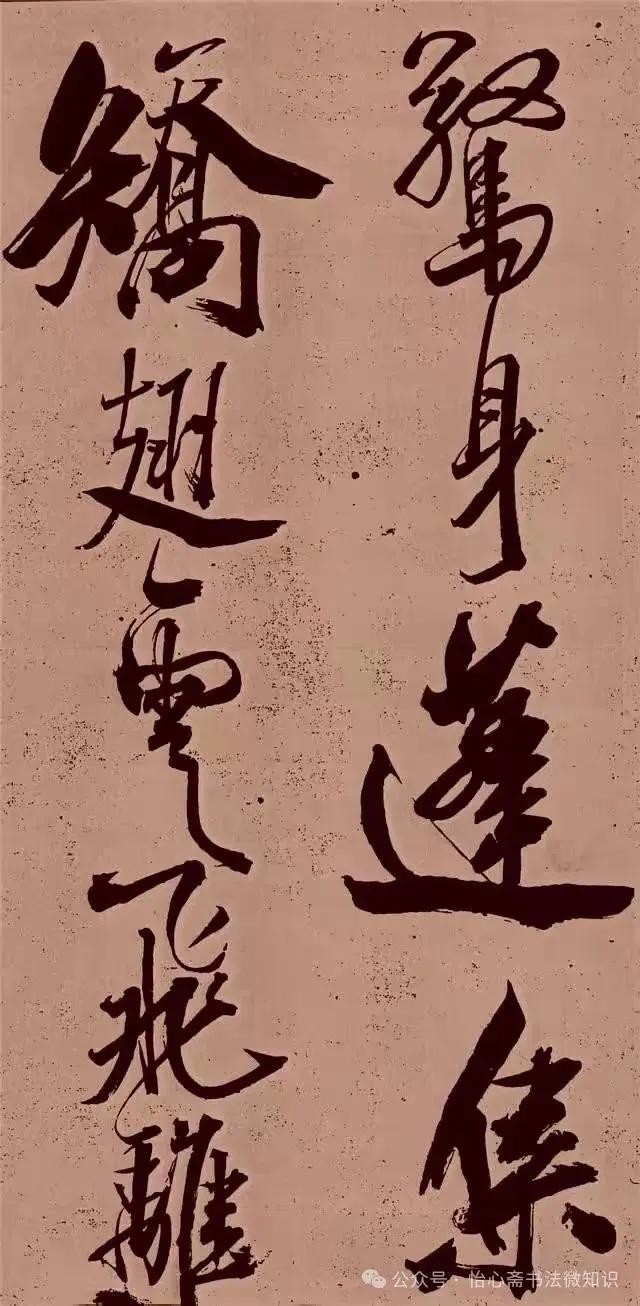 驚身蓬集
矯翅雪飛離
公众号·怡心斋书法微知识